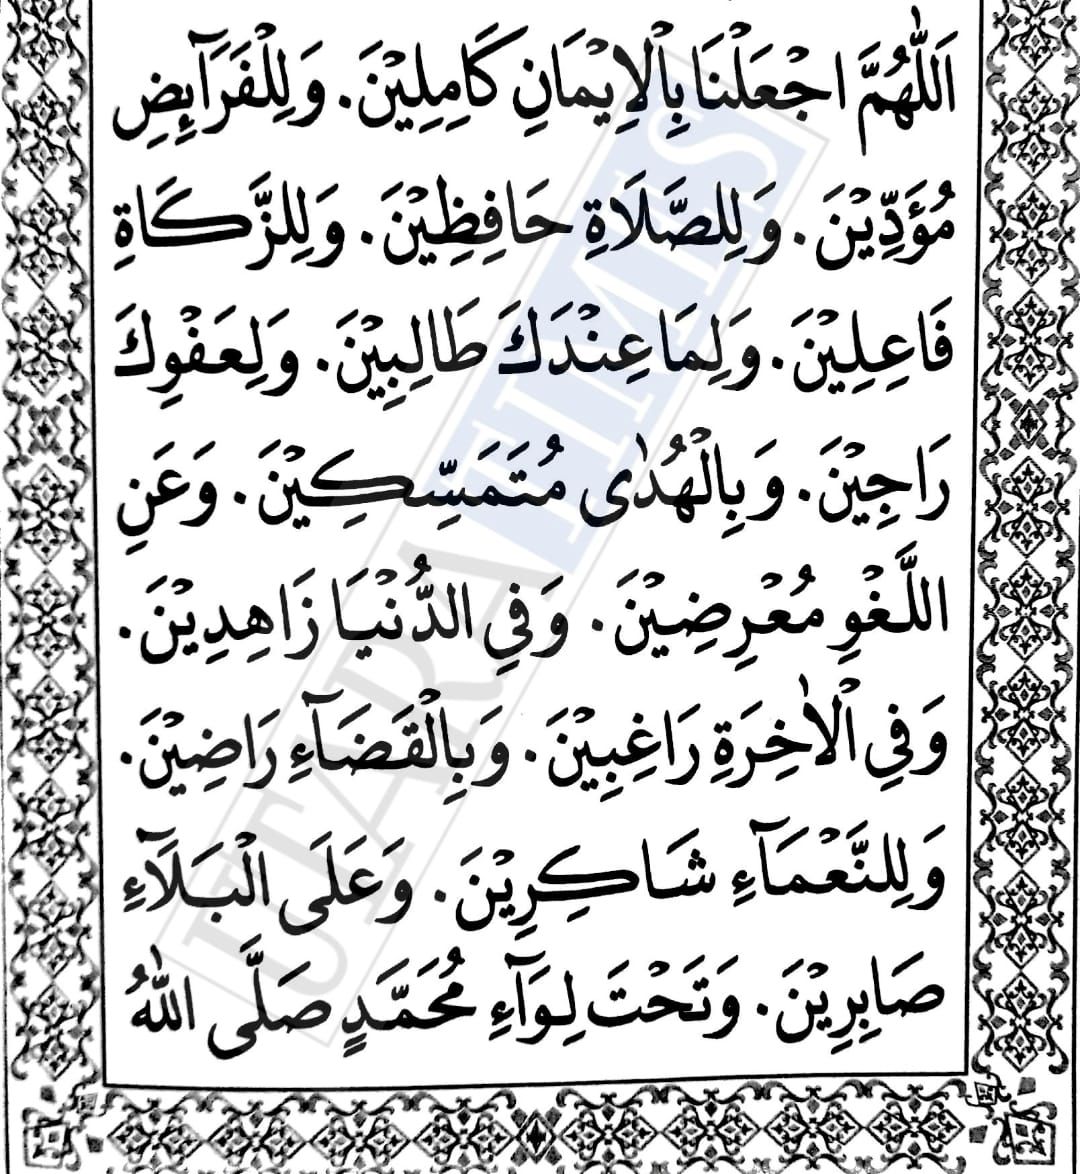 اَللّٰهُمَّ اجْعَلْنَا بِالْاِيْمَانِ كَامِلِيْنَ. وَلِلْفَرَآئِضِ
مُؤَدِّيْنَ. وَلِلصَّلَاةِ حَافِظِيْنَ. وَلِلزَّكَاةِ
فَاعِلِيْنَ. وَلِمَا عِنْدَكَ طَالِبِيْنَ. وَلِعَفْوِكَ
رَاجِيْنَ. وَبِالْهُدٰى مُتَمَسِّكِيْنَ. وَعَنِ
اللَّغْوِ مُعْرِضِيْنَ. وَفِي الدُّنْيَا زَاهِدِيْنَ.
وَفِي الْاٰخِرَةِ رَاغِبِيْنَ. وَبِالْقَضَآءِ رَاضِيْنَ.
وَلِلنَّعْمَآءِ شَاكِرِيْنَ. وَعَلَى الْبَلَآءِ
صَابِرِيْنَ. وَتَحْتَ لِوَآءِ مُحَمَّدٍ صَلَّى اللّٰهُ
UTARATIMES